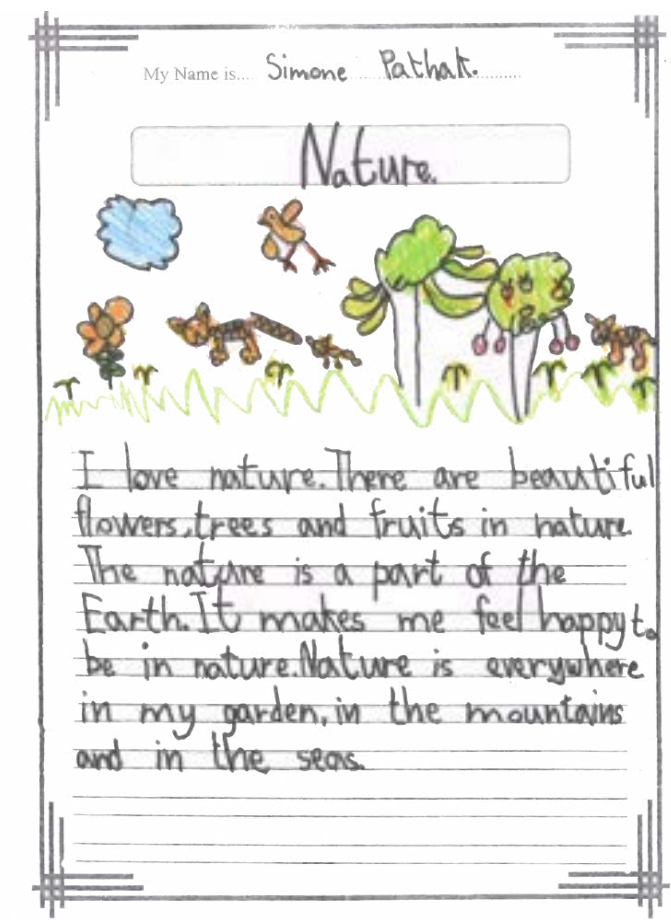 My Name is.... Simone Pathak.
Nature.
I love nature. There are beautiful
flowers, trees and fruits in nature.
The nature is a part of the
Earth. It makes me feel happy to
be in nature. Nature is everywhere
in my garden, in the mountains
and in the seas.